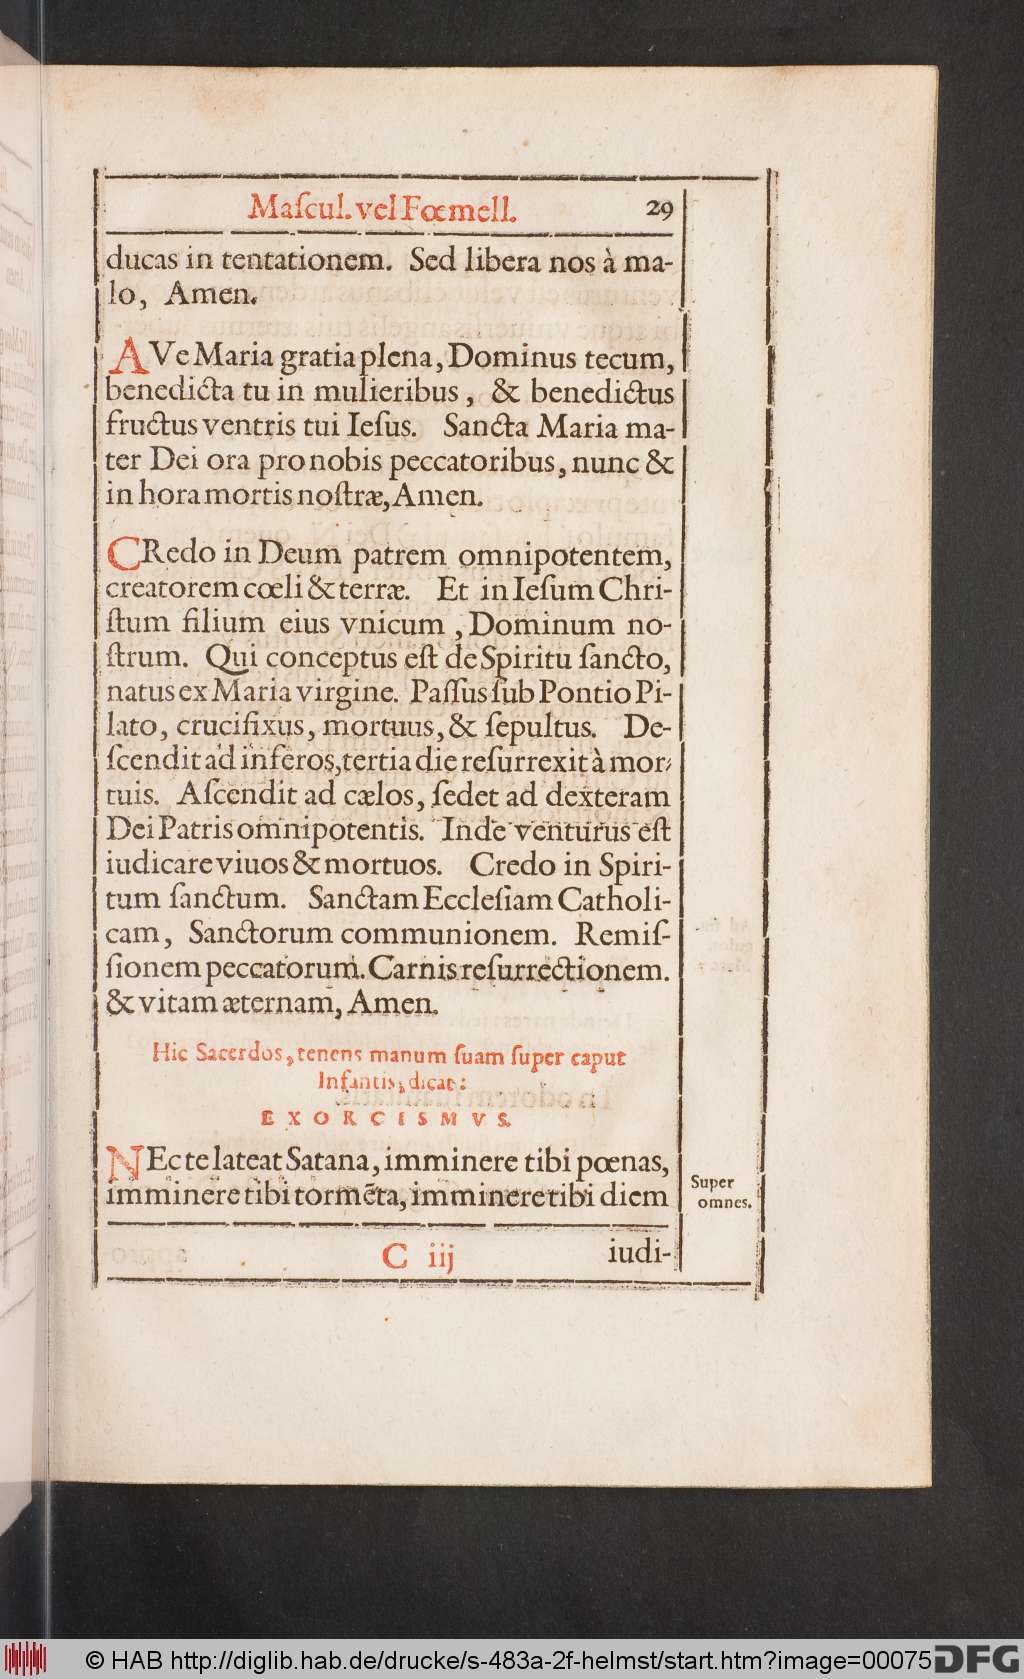 Maſcul. vel Fœmell. 29
ducas in tentationem. Sed libera nos à ma-
lo, Amen.
AVe Maria gratia plena, Dominus tecum,
benedicta tu in mulieribus, & benedictus
fructus ventris tui Ieſus. Sancta Maria ma-
ter Dei ora pro nobis peccatoribus, nunc &
in hora mortis noſtræ, Amen.
CRedo in Deum patrem omnipotentem,
creatorem cœli & terræ. Et in Ieſum Chri-
ſtum filium eius vnicum, Dominum no-
ſtrum. Qui conceptus eſt de Spiritu ſancto,
natus ex Maria virgine. Paſſus ſub Pontio Pi-
lato, crucifixus, mortuus, & ſepultus. De-
ſcendit ad inferos, tertia die reſurrexit à mor-
tuis. Aſcendit ad cælos, ſedet ad dexteram
Dei Patris omnipotentis. Inde venturus eſt
iudicare viuos & mortuos. Credo in Spiri-
tum ſanctum. Sanctam Eccleſiam Catholi-
cam, Sanctorum communionem. Remiſ-
ſionem peccatorum. Carnis reſurrectionem.
& vitam æternam, Amen.
Hic Sacerdos, tenens manum ſuam ſuper caput
Infantis, dicat:
EXORCISMVS.
NEc te lateat Satana, imminere tibi pœnas,
imminere tibi tormẽta, imminere tibi diem
Super
omnes.
C iij iudi-
© HAB http://diglib.hab.de/drucke/s-483a-2f-helmst/start.htm?image=00075
DFG